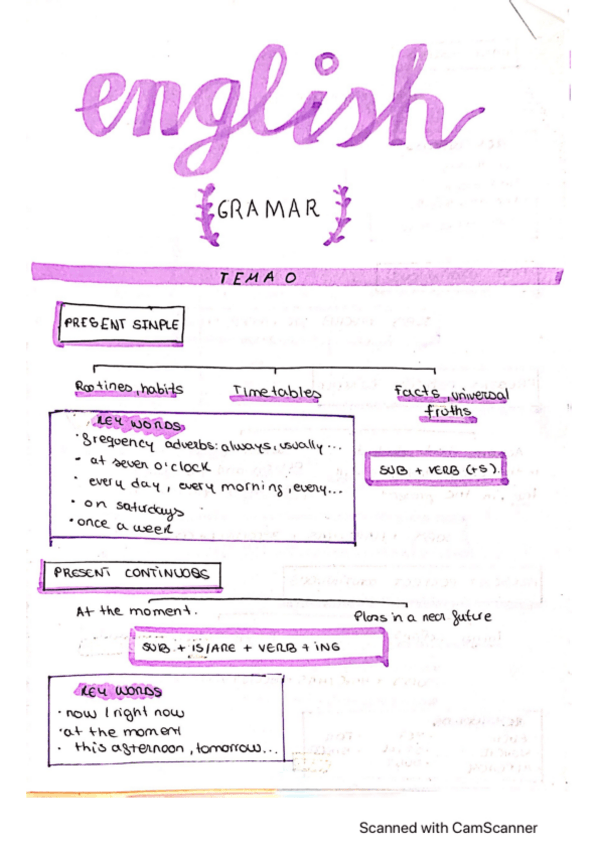 english
GRAMAR
TEMA 0
PRESENT SIMPLE
Rootines, habits Timetables Facts, universal
truths
KEY WORDS
· frequency adverbs: always, usually...
· at seven o'clock
· every day, every morning, every...
· on saturdays
· once a week
SUB + VERB (+S).
PRESENT CONTINUOUS
At the moment. Plans in a near future
SUB + IS/ARE + VERB + ING
KEY WORDS
· now / right now
· at the moment
· this afternoon, tomorrow...
Scanned with CamScanner